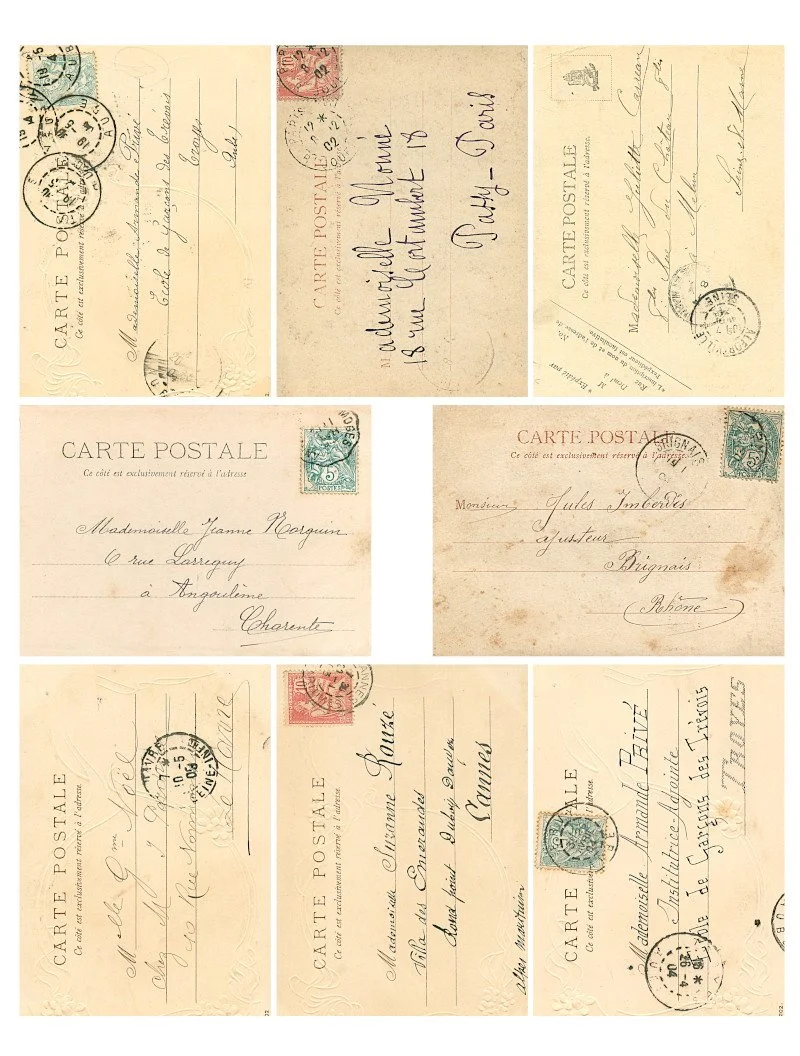 CARTE POSTALE
Ce côté est exclusivement réservé à l'adresse.
Mademoiselle Armande Privé
École de Garçons des Trévois
Troyes
Aube
CARTE POSTALE
Ce côté est exclusivement réservé à l'adresse.
Mademoiselle
18 rue 18
Passy - Paris
CARTE POSTALE
Ce côté est exclusivement réservé à l'adresse.
Mademoiselle Juliette
Rue du Château
à Melun
Seine et Marne
* Expédié par
M
Rue
Nº
ALFORTVILLE
SEINE
CARTE POSTALE
Ce côté est exclusivement réservé à l'adresse
5c
POSTES
Mademoiselle Jeanne Norguin
6 rue Larreguy
à Angoulême
Charente
CARTE POSTALE
Ce côté est exclusivement réservé à l'adresse.
BRIGNAIS
Monsieur Jules Imbordès
ajusteur
Brignais
Rhône
CARTE POSTALE
Ce côté est exclusivement réservé à l'adresse.
Melle Gme Noël
chez Mr
40 Rue
Le Havre
CARTE POSTALE
Ce côté est exclusivement réservé à l'adresse.
10
Mademoiselle Suzanne Rouzé
Villa des Emeraudes
Rond point
Cannes
alpes maritimes
CARTE POSTALE
Ce côté est exclusivement réservé à l'adresse.
Mademoiselle Armande PRIVÉ
Institutrice-Adjointe
École de Garçons des Trévois
TROYES
26-4
04